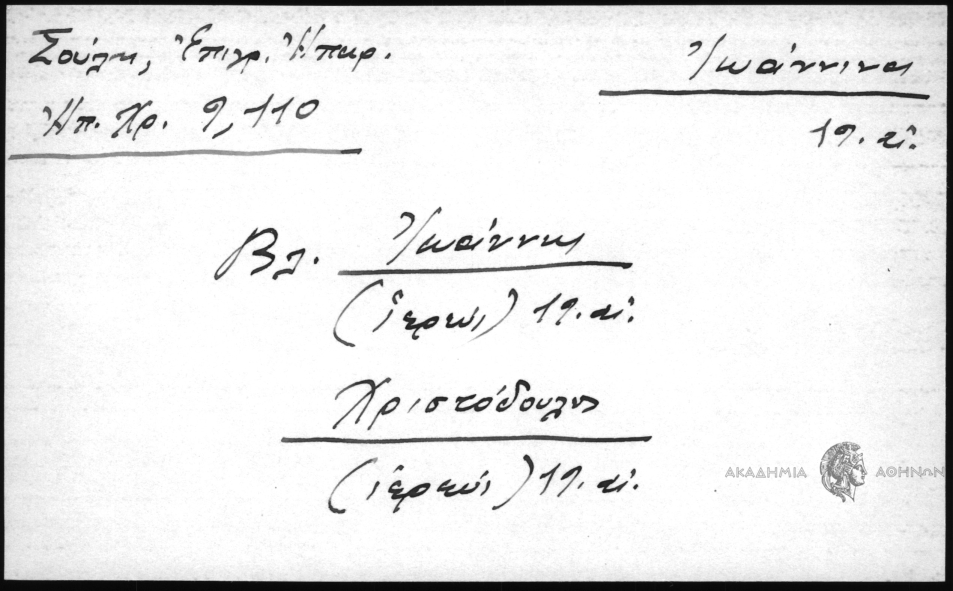 Σούλη, Ἐπιγρ. Ἠπειρ.
Ἠπ. Χρ. 9, 110
Ἰωάννινα
19. αἰ.
Βλ. Ἰωάννης
(ἱερεύς) 19. αἰ.
Χριστόδουλος
(ἱερεύς) 19. αἰ.
ΑΚΑΔΗΜΙΑ ΑΘΗΝΩΝ